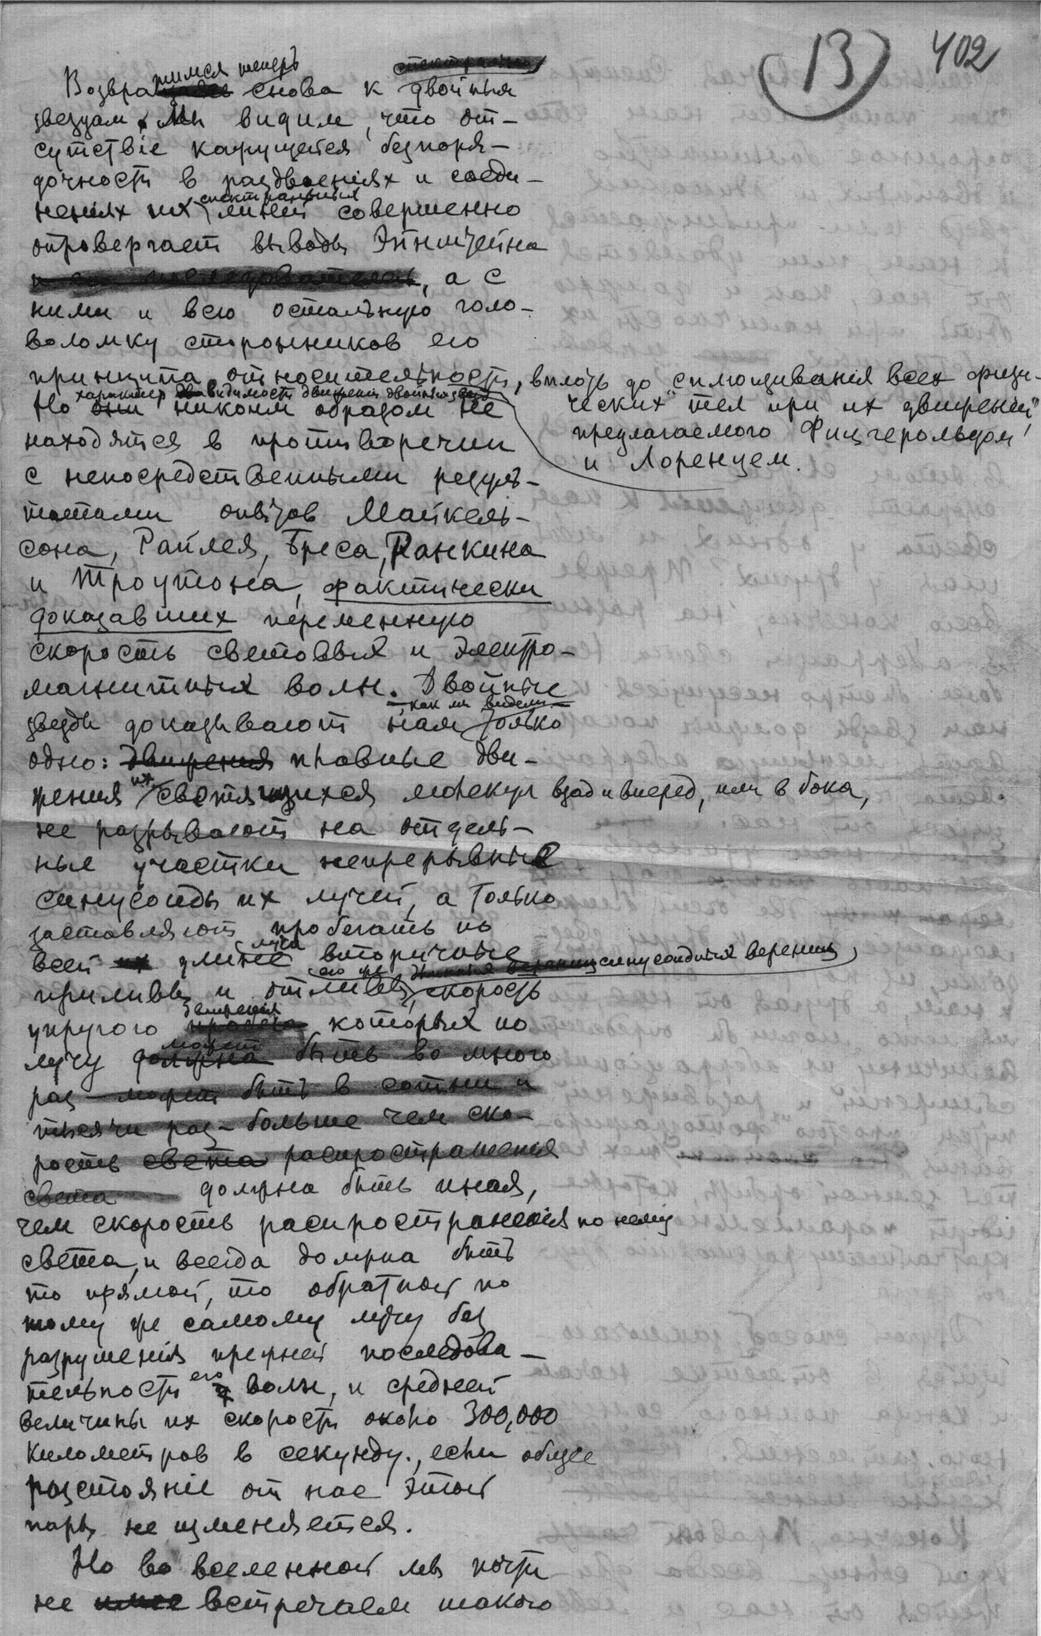 13 402
спектрально
тимся теперь
Возвра снова к двойным
звездам. Мы видим, что от-
сутствіе кажущейся безпоря-
дочности в раздвоеніях и соеди-
спектральных
неніях их линій совершенно
опровергает выводы Эйнштейна
и его последователей, а с
ними и всю остальную голо-
воломку сторонников его
принципа относительности, вплоть до "сплющиванія всех физи-
ческих тел при их движеніи"
предлагаемого Фицгерольдом
и Лоренцем.
характер видимости движенія двойных звезд
Но они никоим образом не
находятся в противоречии
с непосредственными резуль-
татами опытов Майкель-
сона, Рэйлея, Бреса, Ранкина
и Троутона, фактически
доказавших переменную
скорость световых и электро-
магнитных волн. Двойные
, как мы видели
звезды доказывают нам только
одно: движения плавные дви-
жения их светящихся молекул взад и вперед, или в бока,
не разрывают на отдель-
ные участки непрерывные
синусоиды их лучей, а только
заставляют пробегать по
луча
всей их длине вторичные
его же синусоидных верениц
приливы и отливы, скорость
упругого которых по
может
лучу должна быть во много
раз - может быть в сотни и
тысячи раз - больше чем ско-
рость света распространения
света должна быть иная,
чем скорость распространения по нему
света, и всегда должна быть
то прямой, то обратной по
тому же самому лучу без
разрушенія прежней последова-
тельности его волн, и средней
величины их скорости около 300,000
километров в секунду., если общее
разстояніе от нас этой
пары не изменяется.
Но во вселенной мы почти
не встречаем такого